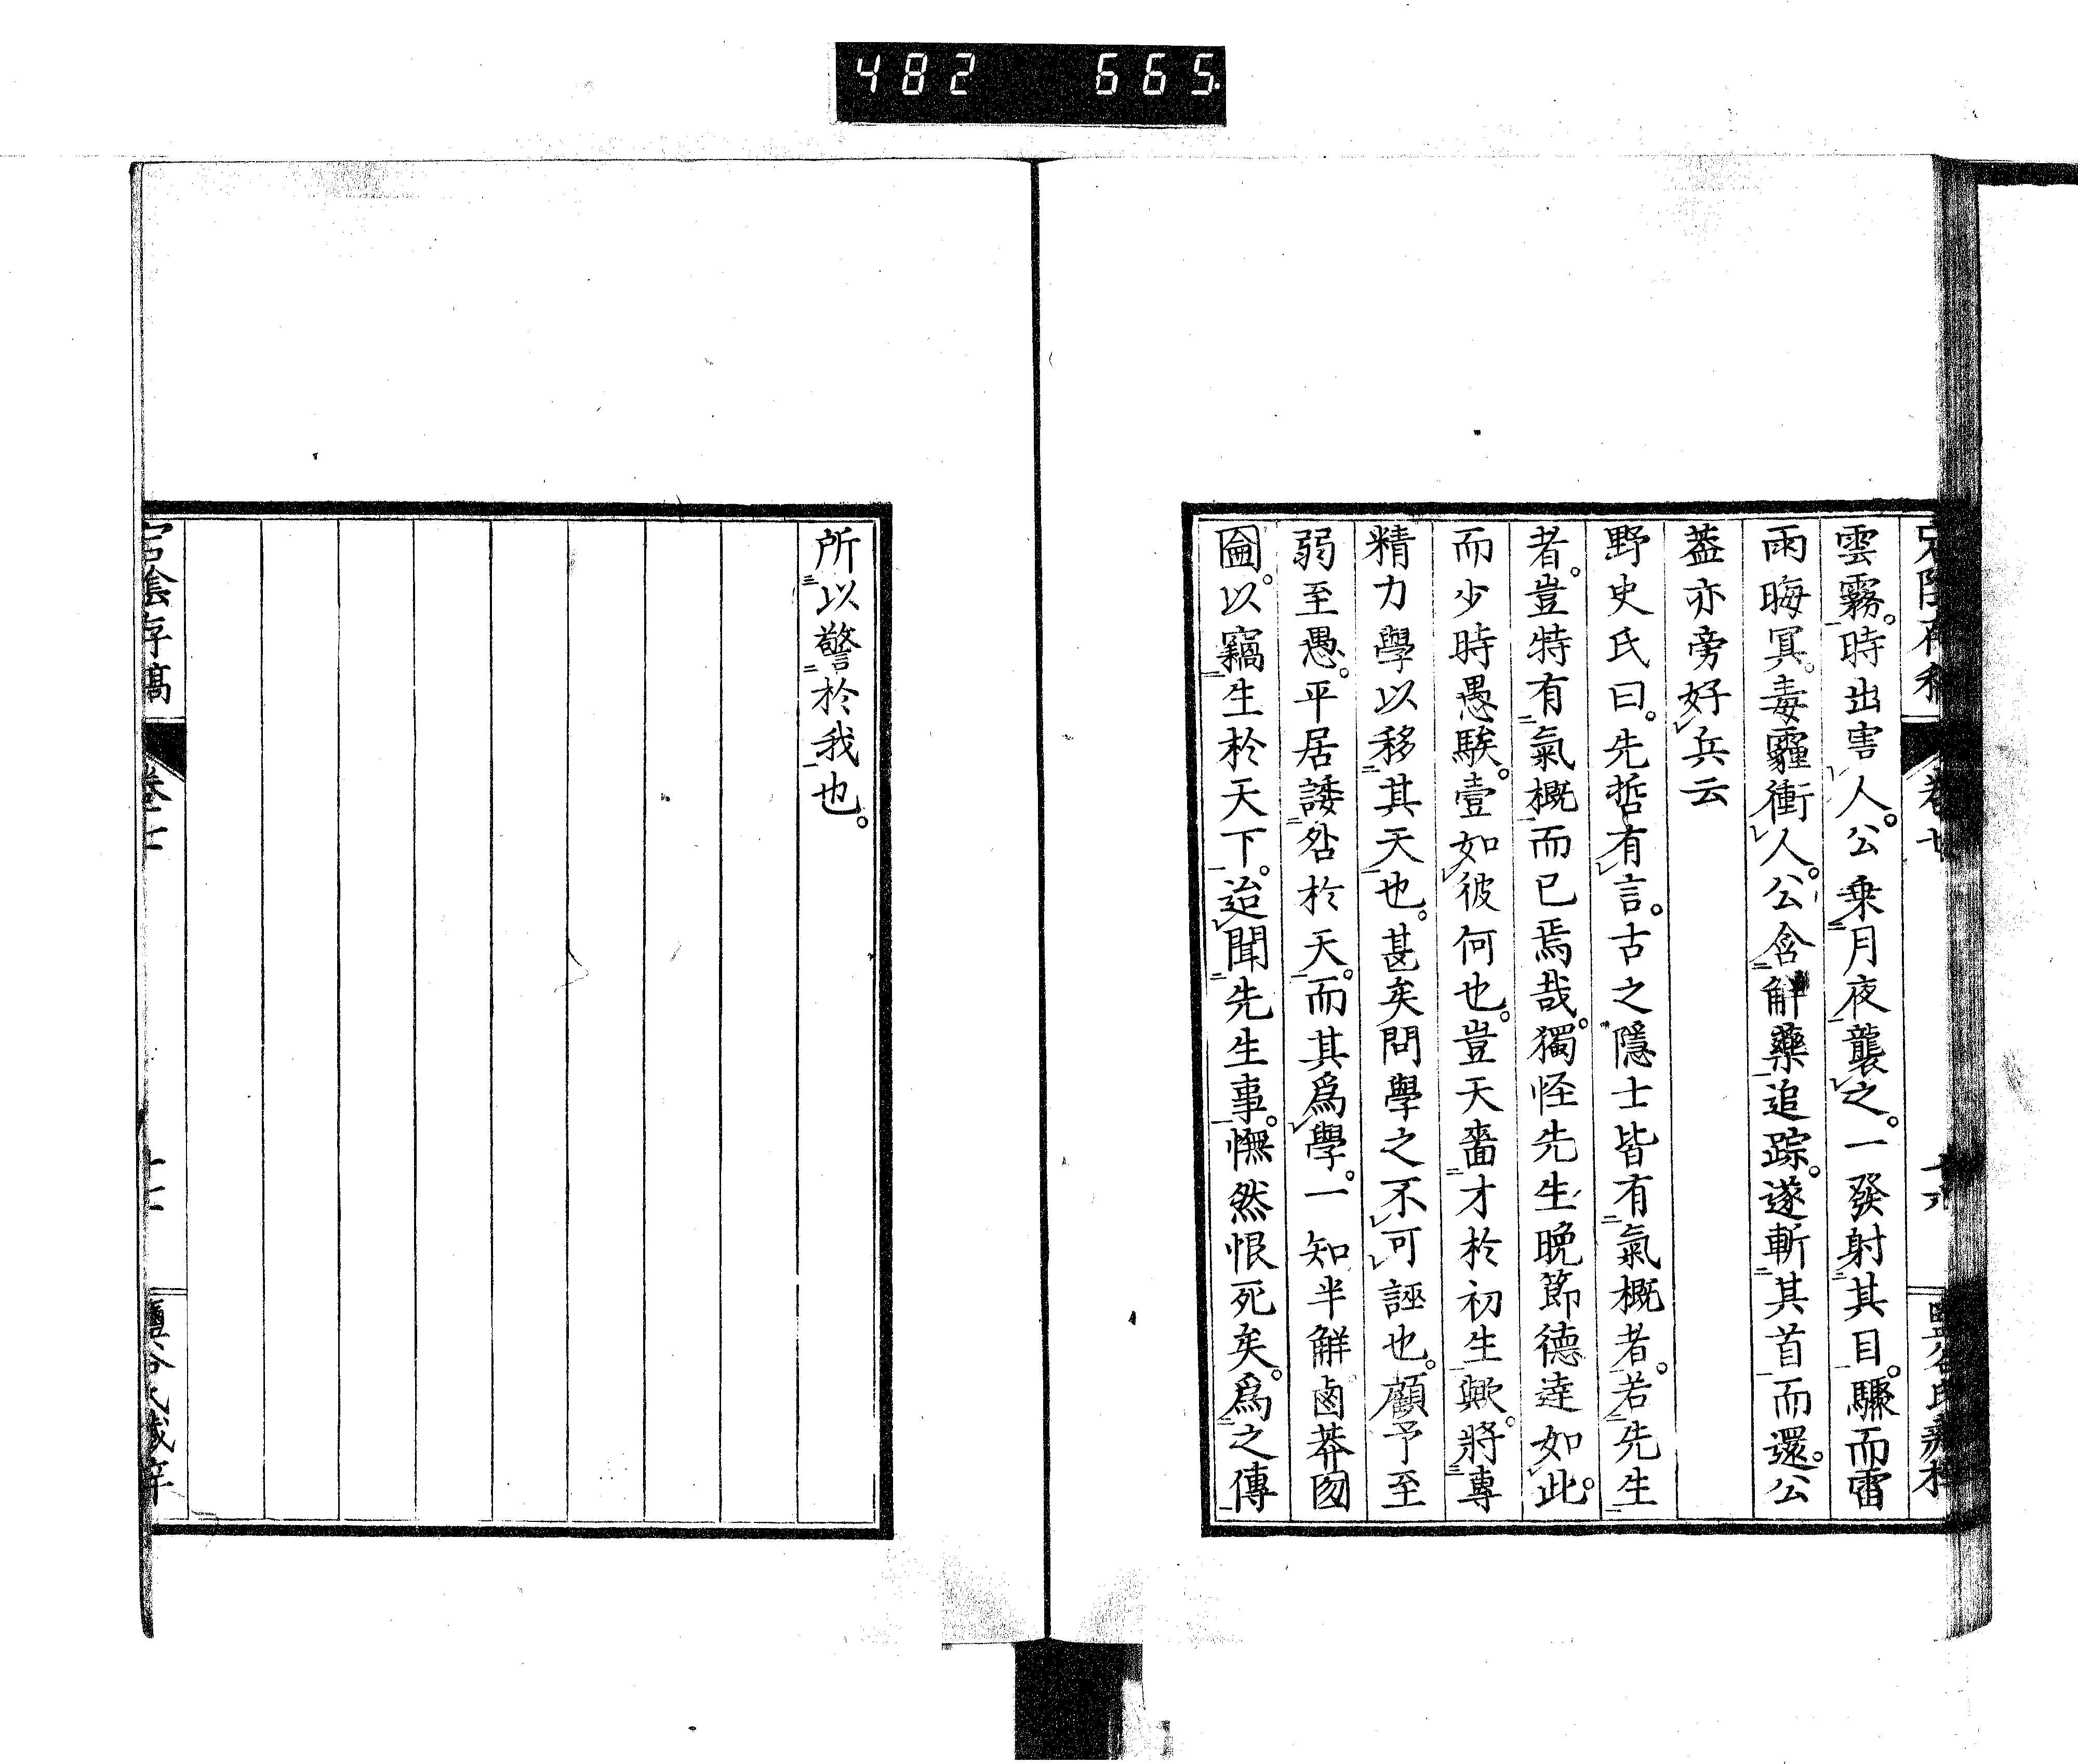 482 665
雲霧。時出害人。公乗月夜襲之。一發射其目。驟而雷
雨晦冥。毒霾衝人。公含解藥追踪。遂斬其首而還。公
蓋亦旁好兵云
野史氏曰。先哲有言。古之隱士皆有氣概者。若先生
者。豈特有氣概而已焉哉。獨怪先生晩節德達如此。
而少時愚騃。壹如彼何也。豈天嗇才於初生歟。將專
精力學以移其天也。甚矣問學之不可誣也。顧予至
弱至愚。平居諉咎於天。而其爲學。一知半解鹵莽囫
圇。以竊生於天下。迨聞先生事。憮然恨死矣。爲之傳
所以警於我也。
宕陰存稿